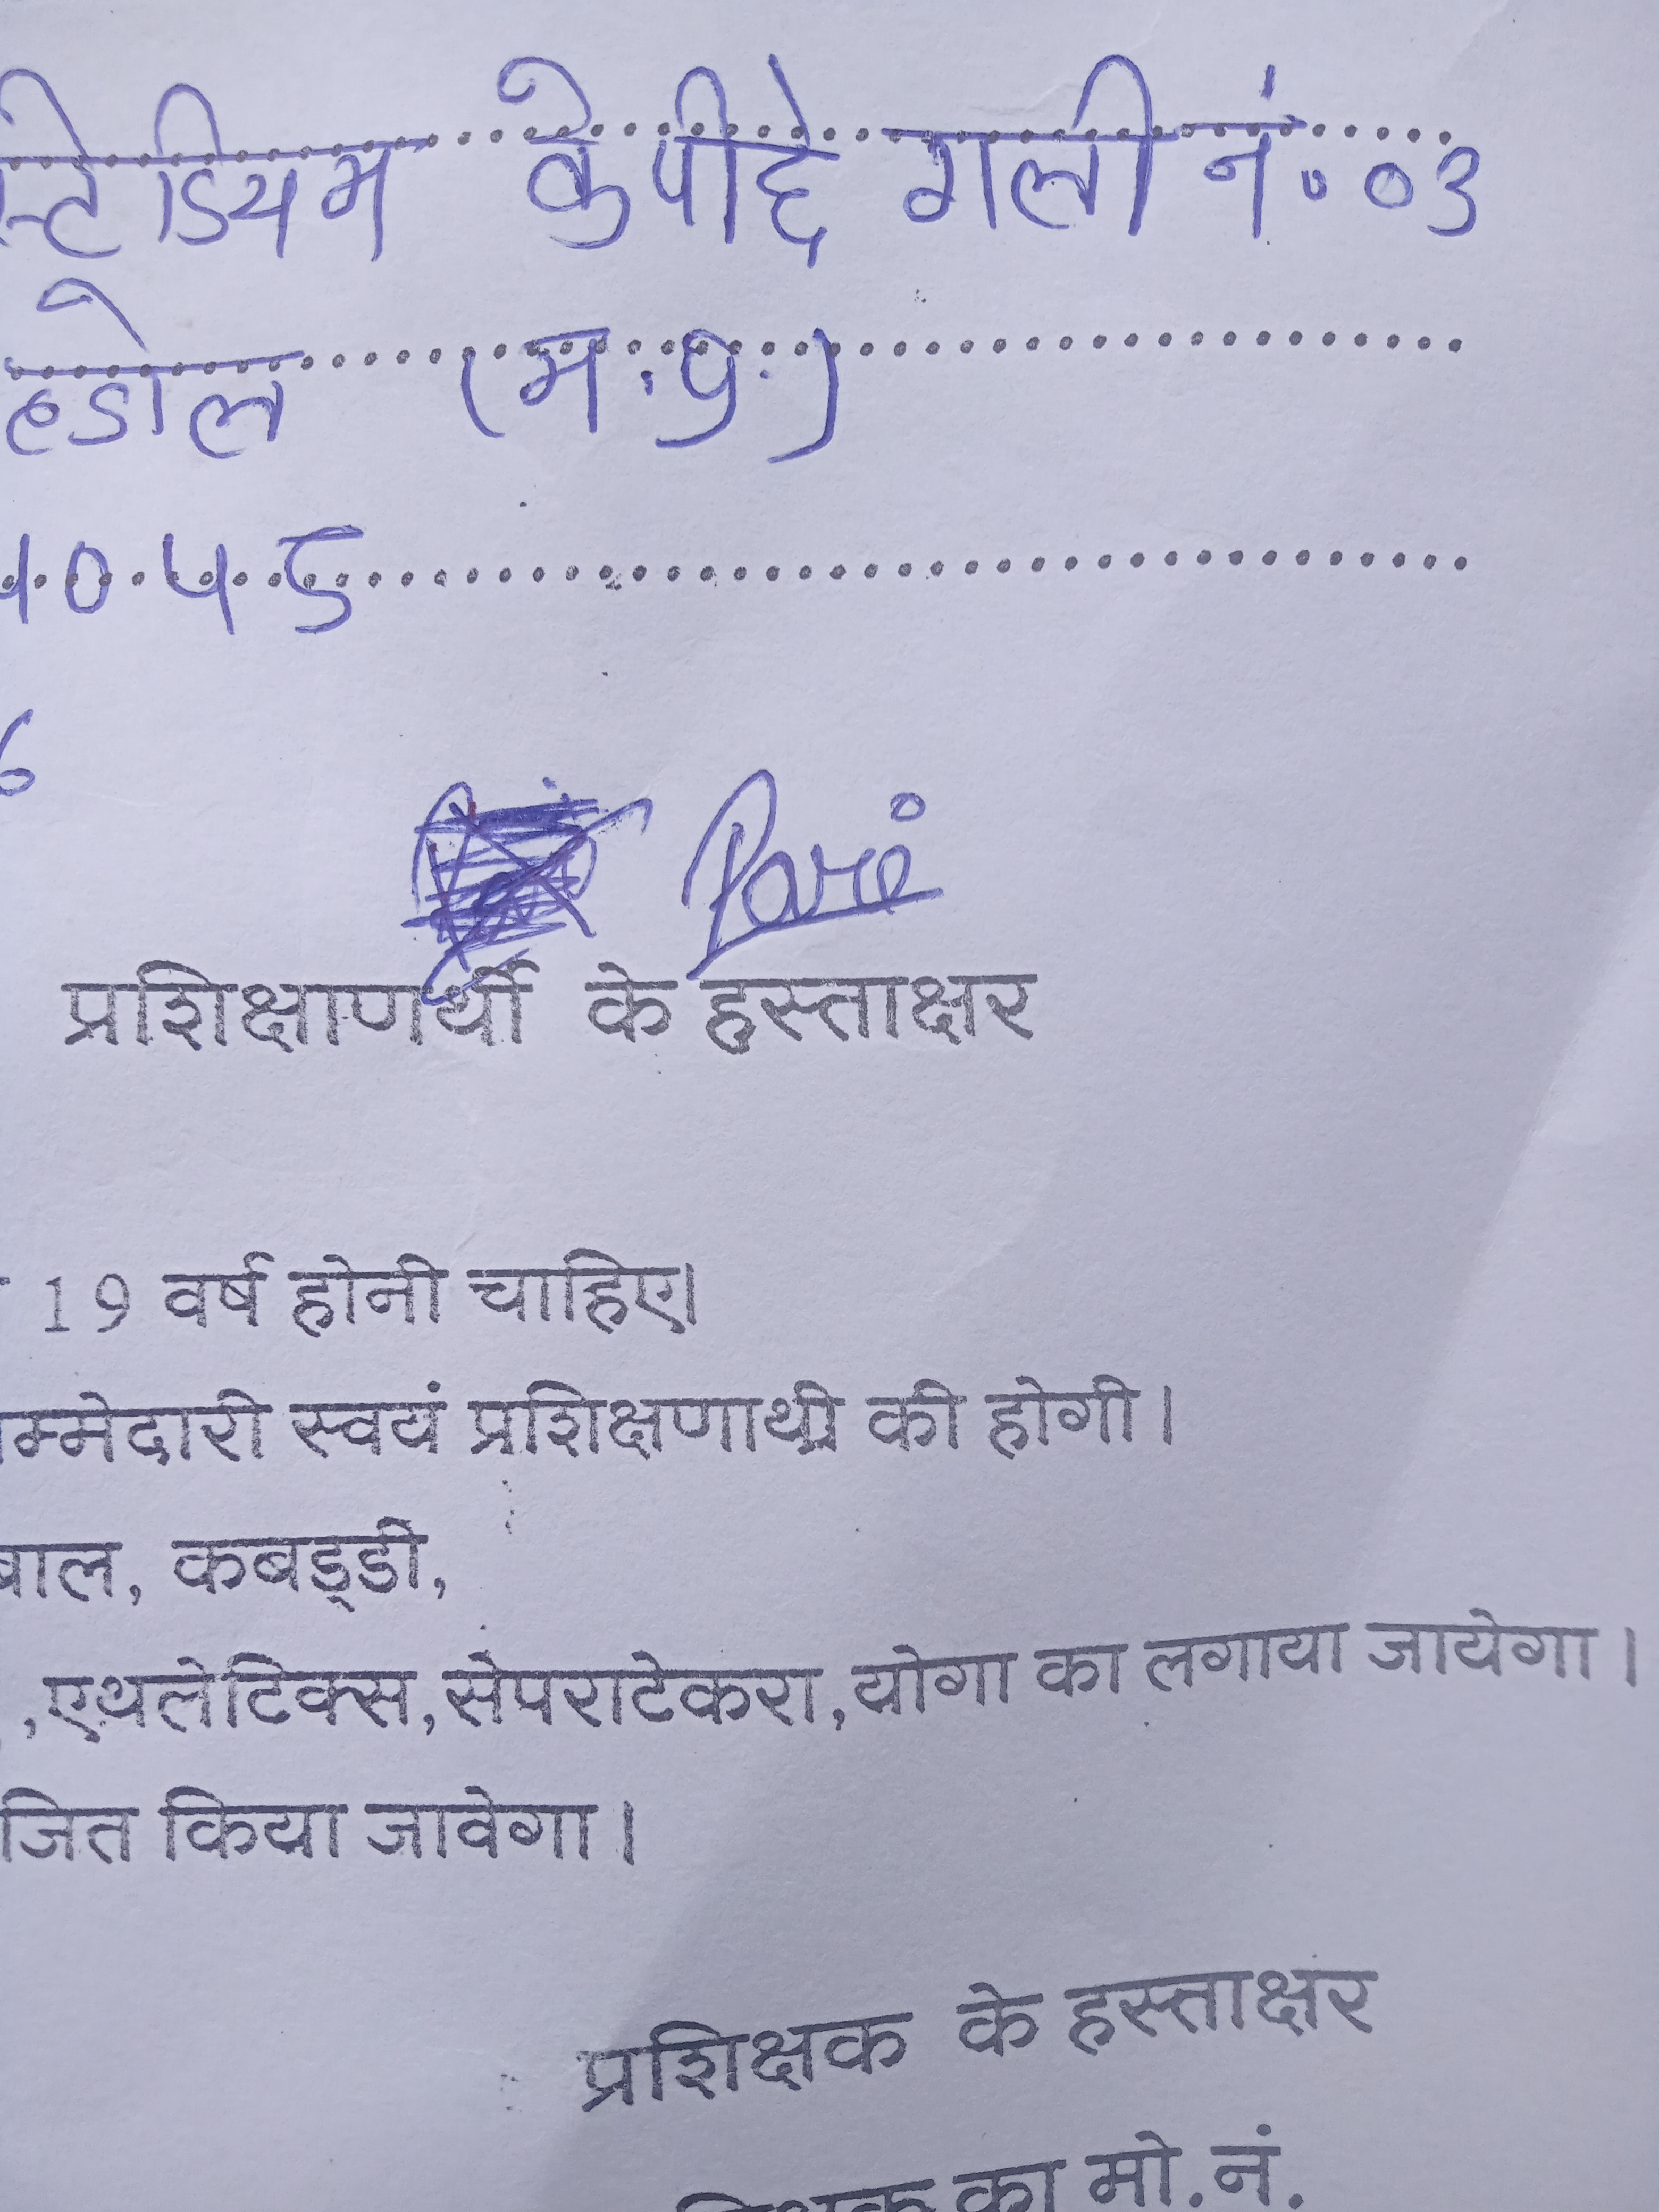 स्टेडियम के पीछे गली नं. 03
हडोल (म.प्र.)
1045
6
Pari
प्रशिक्षाणर्थी के हस्ताक्षर
19 वर्ष होनी चाहिए।
म्मेदारी स्वयं प्रशिक्षणार्थी की होगी।
बाल, कबड्डी,
,एथलेटिक्स,सेपराटेकरा,योगा का लगाया जायेगा।
जित किया जावेगा।
प्रशिक्षक के हस्ताक्षर
का मो.नं.